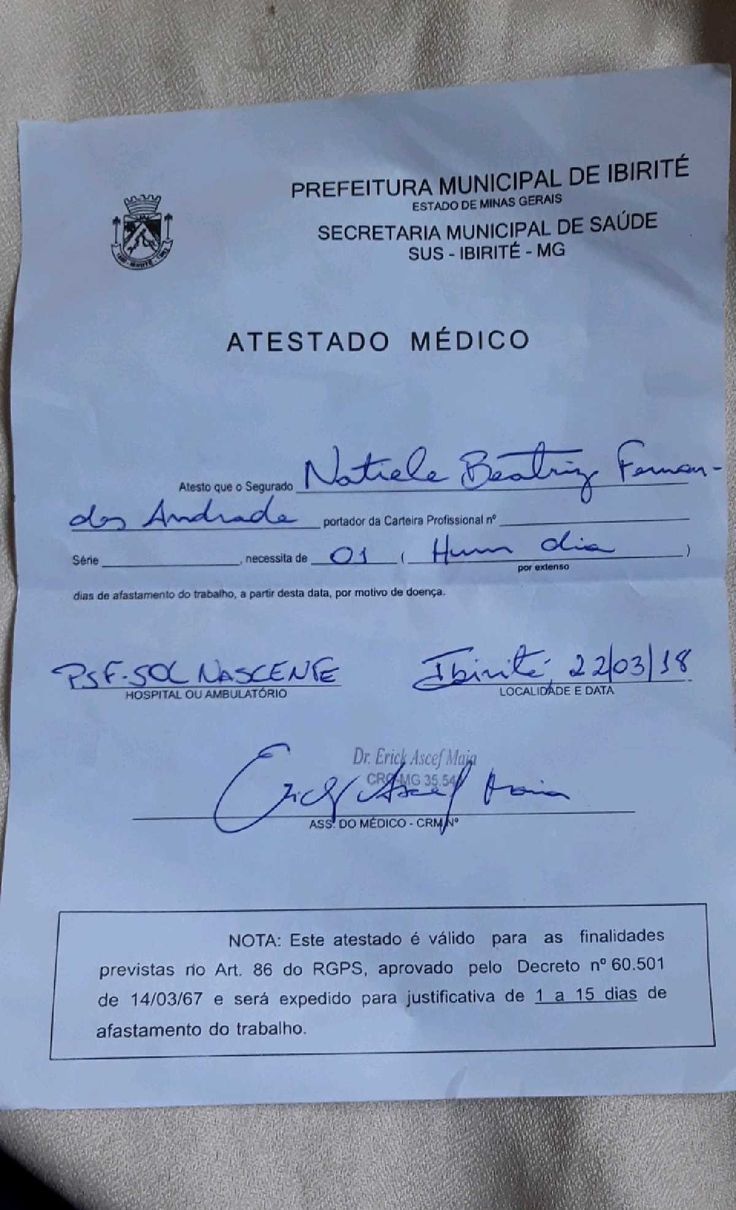 PREFEITURA MUNICIPAL DE IBIRITÉ
ESTADO DE MINAS GERAIS
SECRETARIA MUNICIPAL DE SAÚDE
SUS - IBIRITÉ - MG
ATESTADO MÉDICO
Atesto que o Segurado Natiele Beatriz Fernan-
des Andrade portador da Carteira Profissional nº
Série , necessita de 01 ( Hum dia )
por extenso
dias de afastamento do trabalho, a partir desta data, por motivo de doença.
PSF-SOL NASCENTE Ibirité, 22/03/18
HOSPITAL OU AMBULATÓRIO LOCALIDADE E DATA
Dr. Erick Ascef Maia
CRO-MG 35.54
Erick Ascef Maia
ASS. DO MÉDICO - CRM Nº
NOTA: Este atestado é válido para as finalidades
previstas no Art. 86 do RGPS, aprovado pelo Decreto nº 60.501
de 14/03/67 e será expedido para justificativa de 1 a 15 dias de
afastamento do trabalho.